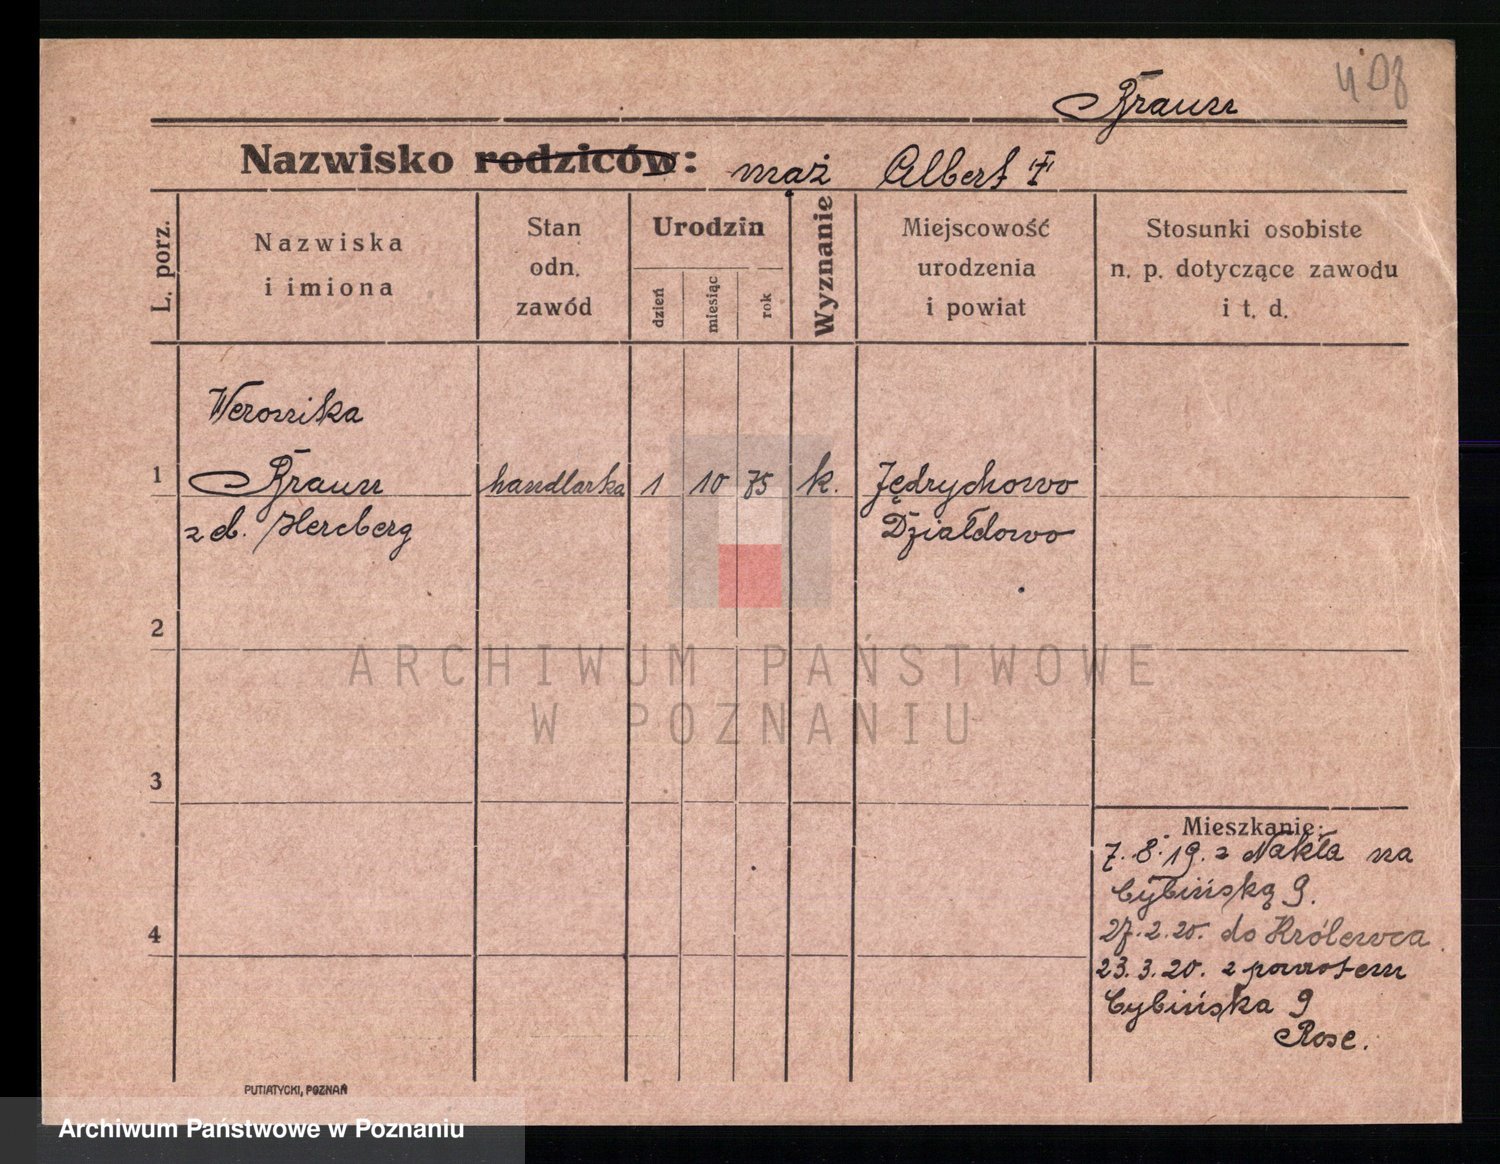 Braun
Nazwisko rodziców: mąż Albert †
L. porz.
Nazwiska
i imiona
Stan
odn.
zawód
Urodzin
dzień
miesiąc
rok
Wyznanie
Miejscowość
urodzenia
i powiat
Stosunki osobiste
n. p. dotyczące zawodu
i t. d.
Weronika
1 Braun handlarka 1 10 75 k. Jędrychowo
z d. Hercberg Działdowo
2
ARCHIWUM PAŃSTWOWE
W POZNANIU
3
Mieszkanie:
7.8.19. z Nakła na
Cybińską 9.
4
27.2.20. do Królewca.
23.3.20. z powrotem
Cybińska 9
Rose.
PUTIATYCKI, POZNAŃ
Archiwum Państwowe w Poznaniu